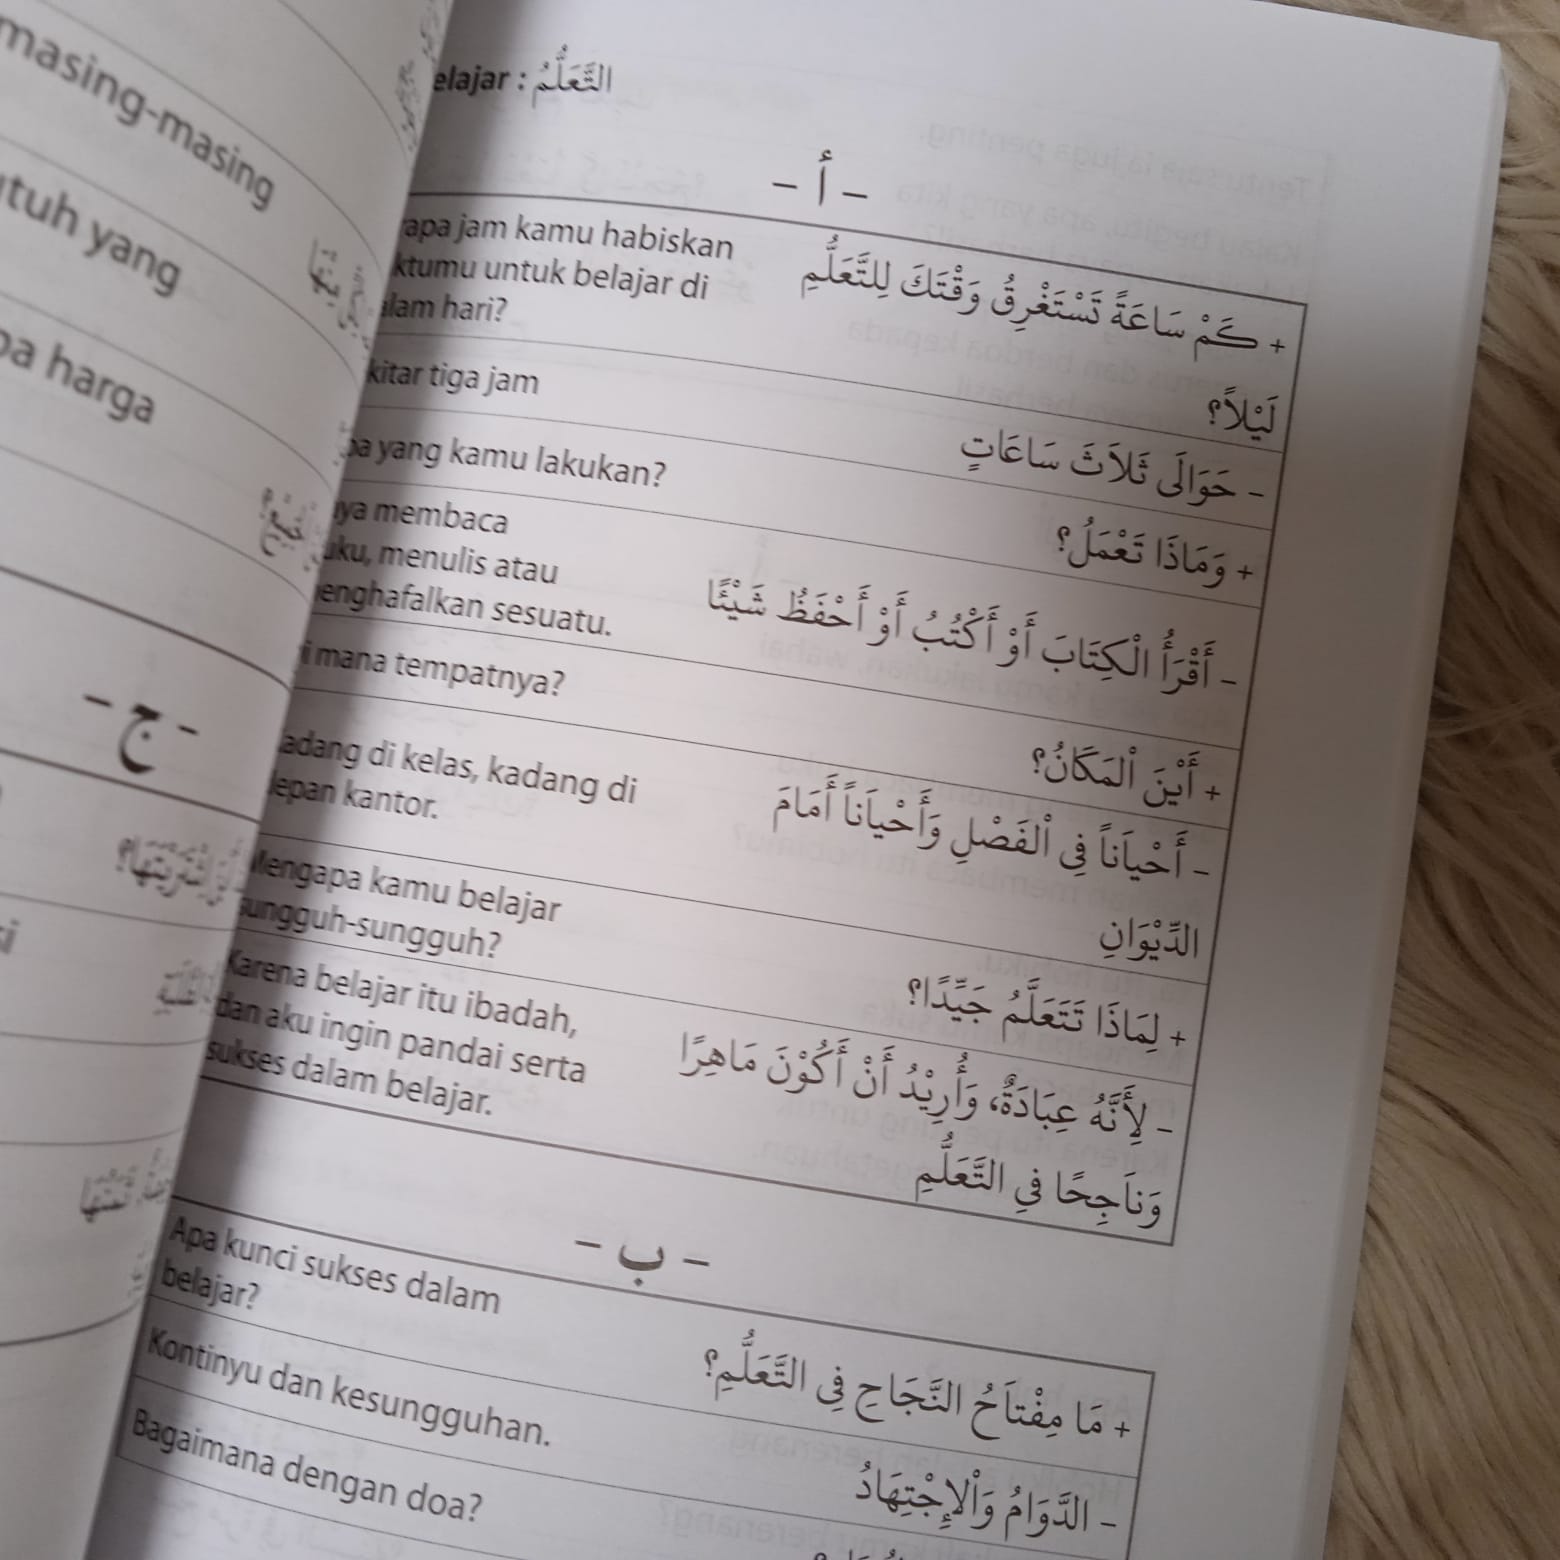 masing-masing
yang
harga
- ج -
: التَّعَلُّمُ
- أ -
jam kamu habiskan
untuk belajar di
hari?
+ كَمْ سَاعَةً تَسْتَغْرِقُ وَقْتَكَ لِلتَّعَلُّمِ
لَيْلاً؟
tiga jam
- حَوَالَى ثَلاَثَ سَاعَاتٍ
yang kamu lakukan?
+ وَمَاذَا تَعْمَلُ؟
membaca
menulis atau
sesuatu.
- أَقْرَأُ الْكِتَابَ أَوْ أَكْتُبُ أَوْ أَحْفَظُ شَيْئًا
mana tempatnya?
+ أَيْنَ اْلمَكَانُ؟
di kelas, kadang di
kantor.
- أَحْيَاناً فِي اْلفَصْلِ وَأَحْيَاناً أَمَامَ
الدِّيْوَانِ
Mengapa kamu belajar
sungguh-sungguh?
+ لِمَاذَا تَتَعَلَّمُ جَيِّدًا؟
Karena belajar itu ibadah,
dan aku ingin pandai serta
sukses dalam belajar.
- لِأَنَّهُ عِبَادَةٌ، وَأُرِيْدُ أَنْ أَكُوْنَ مَاهِرًا
وَنَاجِحًا فِي التَّعَلُّمِ
- ب -
Apa kunci sukses dalam
belajar?
+ مَا مِفْتَاحُ النَّجَاحِ فِي التَّعَلُّمِ؟
Kontinyu dan kesungguhan.
- الدَّوَامُ وَاْلإِجْتِهَادُ
Bagaimana dengan doa?